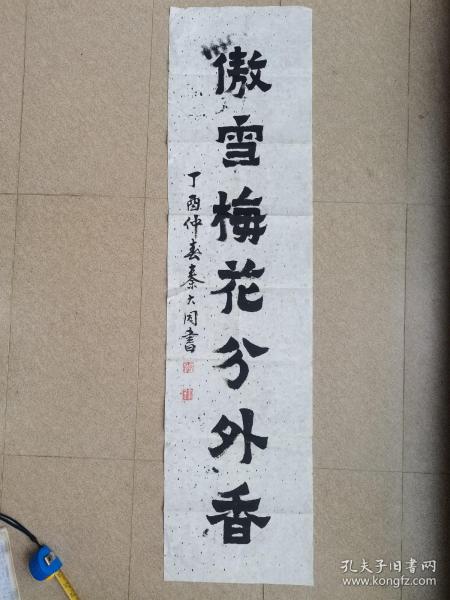 傲雪梅花分外香
丁酉仲春秦大同书
孔夫子旧书网
www.kongfz.com